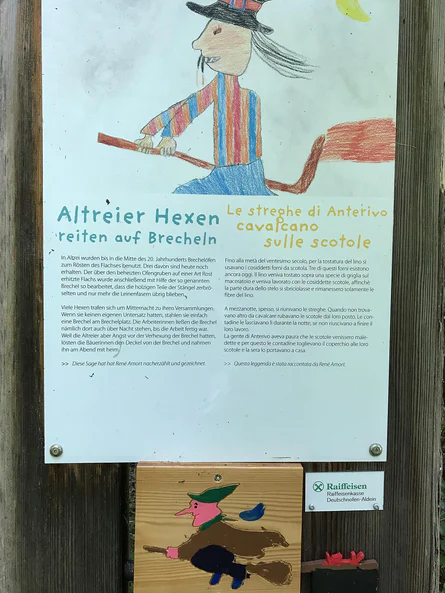 Altreier Hexen
reiten auf Brecheln
In Altrei wurden bis in die Mitte des 20. Jahrhunderts Brechelöfen
zum Rösten des Flachses benutzt. Drei davon sind heute noch
erhalten. Der über den beheizten Ofengruben auf einer Art Rost
erhitzte Flachs wurde anschließend mit Hilfe der so genannten
Brechel so bearbeitet, dass die holzigen Teile der Stängel zerbrö-
selten und nur mehr die Leinenfasern übrig blieben.
Viele Hexen trafen sich um Mitternacht zu ihren Versammlungen.
Wenn sie keinen eigenen Untersatz hatten, stahlen sie einfach
eine Brechel am Brechelplatz. Die Arbeiterinnen ließen die Brechel
nämlich dort auch über Nacht stehen, bis die Arbeit fertig war.
Weil die Altreier aber Angst vor der Verhexung der Brechel hatten,
lösten die Bäuerinnen den Deckel von der Brechel und nahmen
ihn am Abend mit heim.
>> Diese Sage hat hat René Amort nacherzählt und gezeichnet.
Le streghe di Anterivo
cavalcano
sulle scotole
Fino alla metà del ventesimo secolo, per la tostatura del lino si
usavano i cosiddetti forni da scotola. Tre di questi forni esistono
ancora oggi. Il lino veniva tostato sopra una specie di griglia sul
macinatoio e veniva lavorato con le cosiddette scotole, affinché
la parte dura dello stelo si sbriciolasse e rimanessero solamente le
fibre del lino.
A mezzanotte, spesso, si riunivano le streghe. Quando non trova-
vano altro da cavalcare rubavano le scotole dal loro posto. Le con-
tadine le lasciavano lì durante la notte, se non riuscivano a finire il
loro lavoro.
La gente di Anterivo aveva paura che le scotole venissero male-
dette e per questo le contadine toglievano il coperchio alle loro
scotole e la sera lo portavano a casa.
>> Questa leggenda è stata raccontata da René Amort.
Raiffeisen
Raiffeisenkasse
Deutschnofen-Aldein